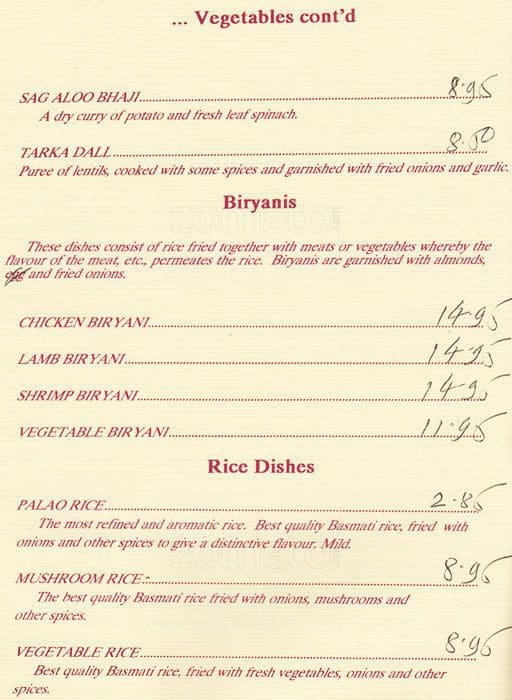 ... Vegetables cont'd
SAG ALOO BHAJI 8.95
A dry curry of potato and fresh leaf spinach.
TARKA DALL 8.50
Puree of lentils, cooked with some spices and garnished with fried onions and garlic.
Biryanis
zomato
These dishes consist of rice fried together with meats or vegetables whereby the
flavour of the meat, etc., permeates the rice. Biryanis are garnished with almonds,
egg and fried onions.
CHICKEN BIRYANI 14.95
LAMB BIRYANI 14.95
SHRIMP BIRYANI 14.95
VEGETABLE BIRYANI 11.95
Rice Dishes
PALAO RICE 2.85
The most refined and aromatic rice. Best quality Basmati rice, fried with
onions and other spices to give a distinctive flavour. Mild.
zomato
MUSHROOM RICE 8.95
The best quality Basmati rice fried with onions, mushrooms and
other spices.
VEGETABLE RICE 8.95
Best quality Basmati rice, fried with fresh vegetables, onions and other
spices.